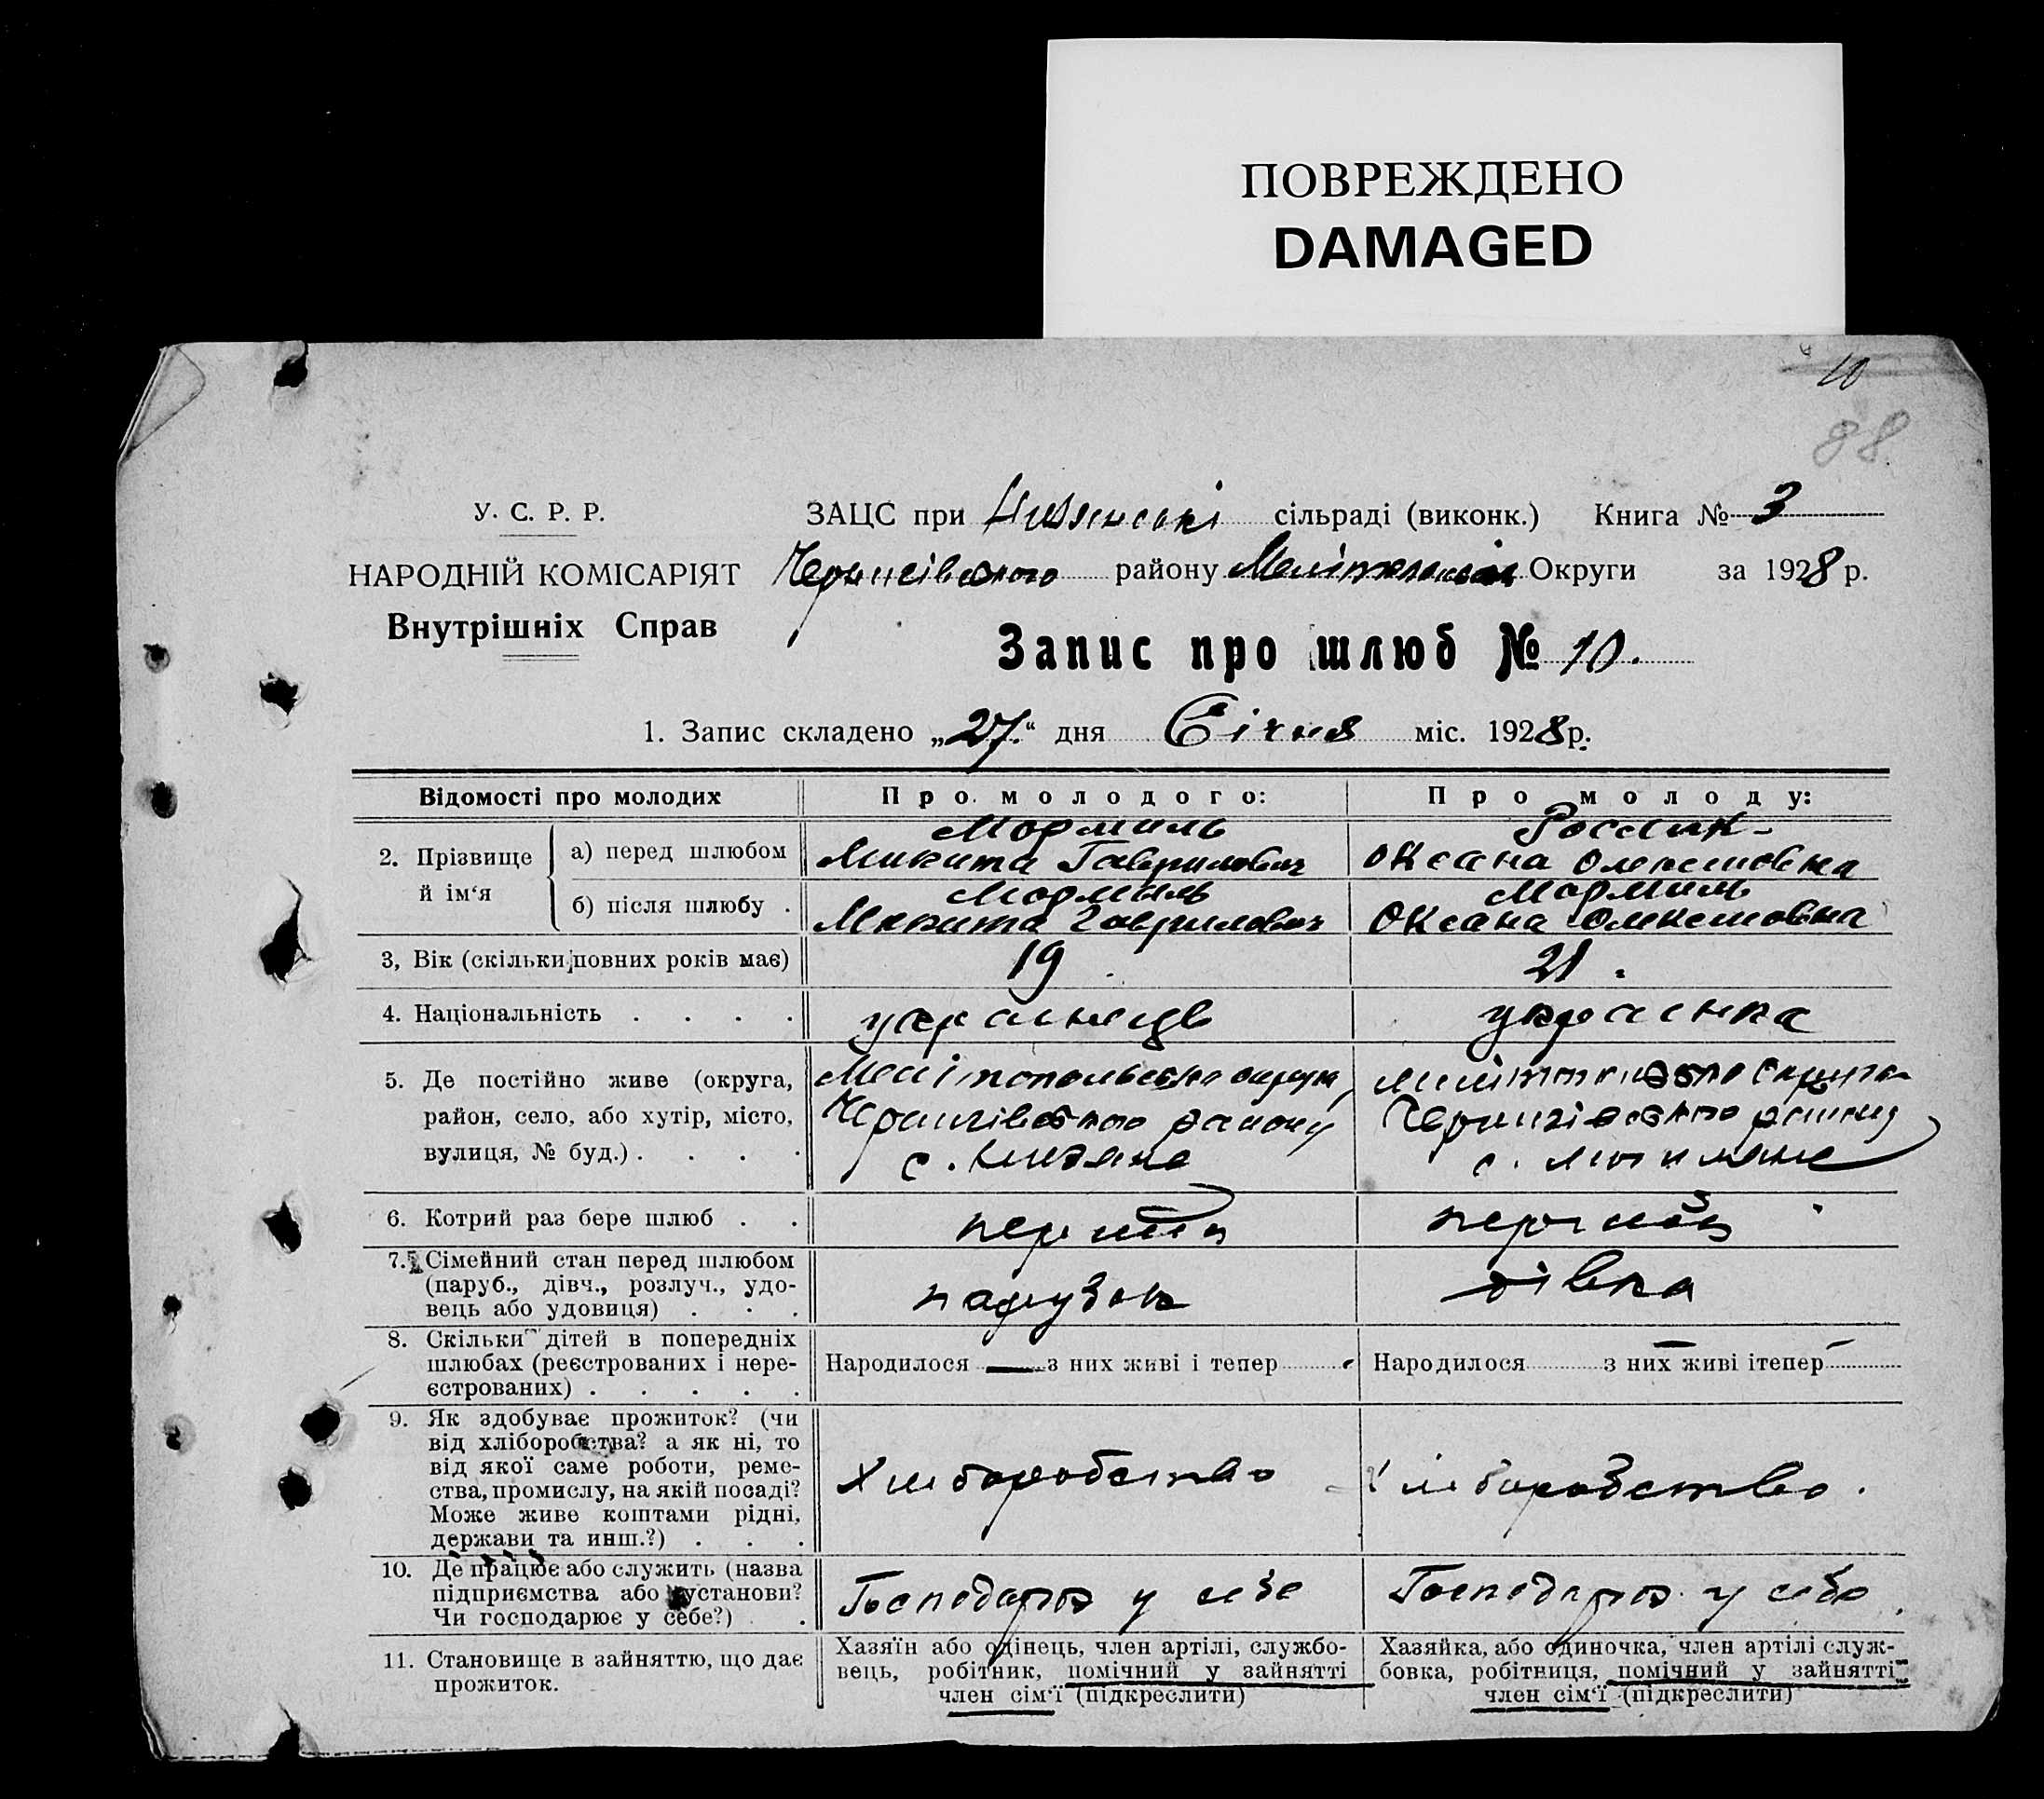 ПОВРЕЖДЕНО
DAMAGED
10
88
У. С. Р. Р.
НАРОДНІЙ КОМІСАРІЯТ
Внутрішніх Справ
ЗАЦС при сільраді (виконк.) Книга № 3
району Округи за 1928 р.
Запис про шлюб № 10.
1. Запис складено „27." дня Січня міс. 1928 р.
Відомості про молодих
Про молодого:
Про молоду:
2. Прізвище й ім'я
а) перед шлюбом
Мормиль
Микита Гаврилович
Оксана
б) після шлюбу
Мормиль
Микита Гаврилович
Мормиль
Оксана
3, Вік (скільки повних років має)
19
21.
4. Національність
українка
5. Де постійно живе (округа,
район, село, або хутір, місто,
вулиця, № буд.)
району
с.
району
с.
6. Котрий раз бере шлюб
перший
перший
7. Сімейний стан перед шлюбом
(паруб., дівч., розлуч., удо-
вець або удовиця)
парубок
дівка
8. Скільки дітей в попередніх
шлюбах (реєстрованих і нере-
єстрованих)
Народилося — з них живі і тепер
Народилося з них живі ітепер
9. Як здобуває прожиток? (чи
від хліборобства? а як ні, то
від якої саме роботи, реме-
ства, промислу, на якій посаді?
Може живе коштами рідні,
держави та инш.?)
Хліборобство
Хліборобство.
10. Де працює або служить (назва
підприємства або установи?
Чи господарює у себе?)
у себе
у себе
11. Становище в зайняттю, що дає
прожиток.
Хазяїн або одінець, член артілі, службо-
вець, робітник, помічний у зайнятті
член сім'ї (підкреслити)
Хазяйка, або одиночка, член артілі служ-
бовка, робітниця, помічний у зайнятті
член сім'ї (підкреслити)